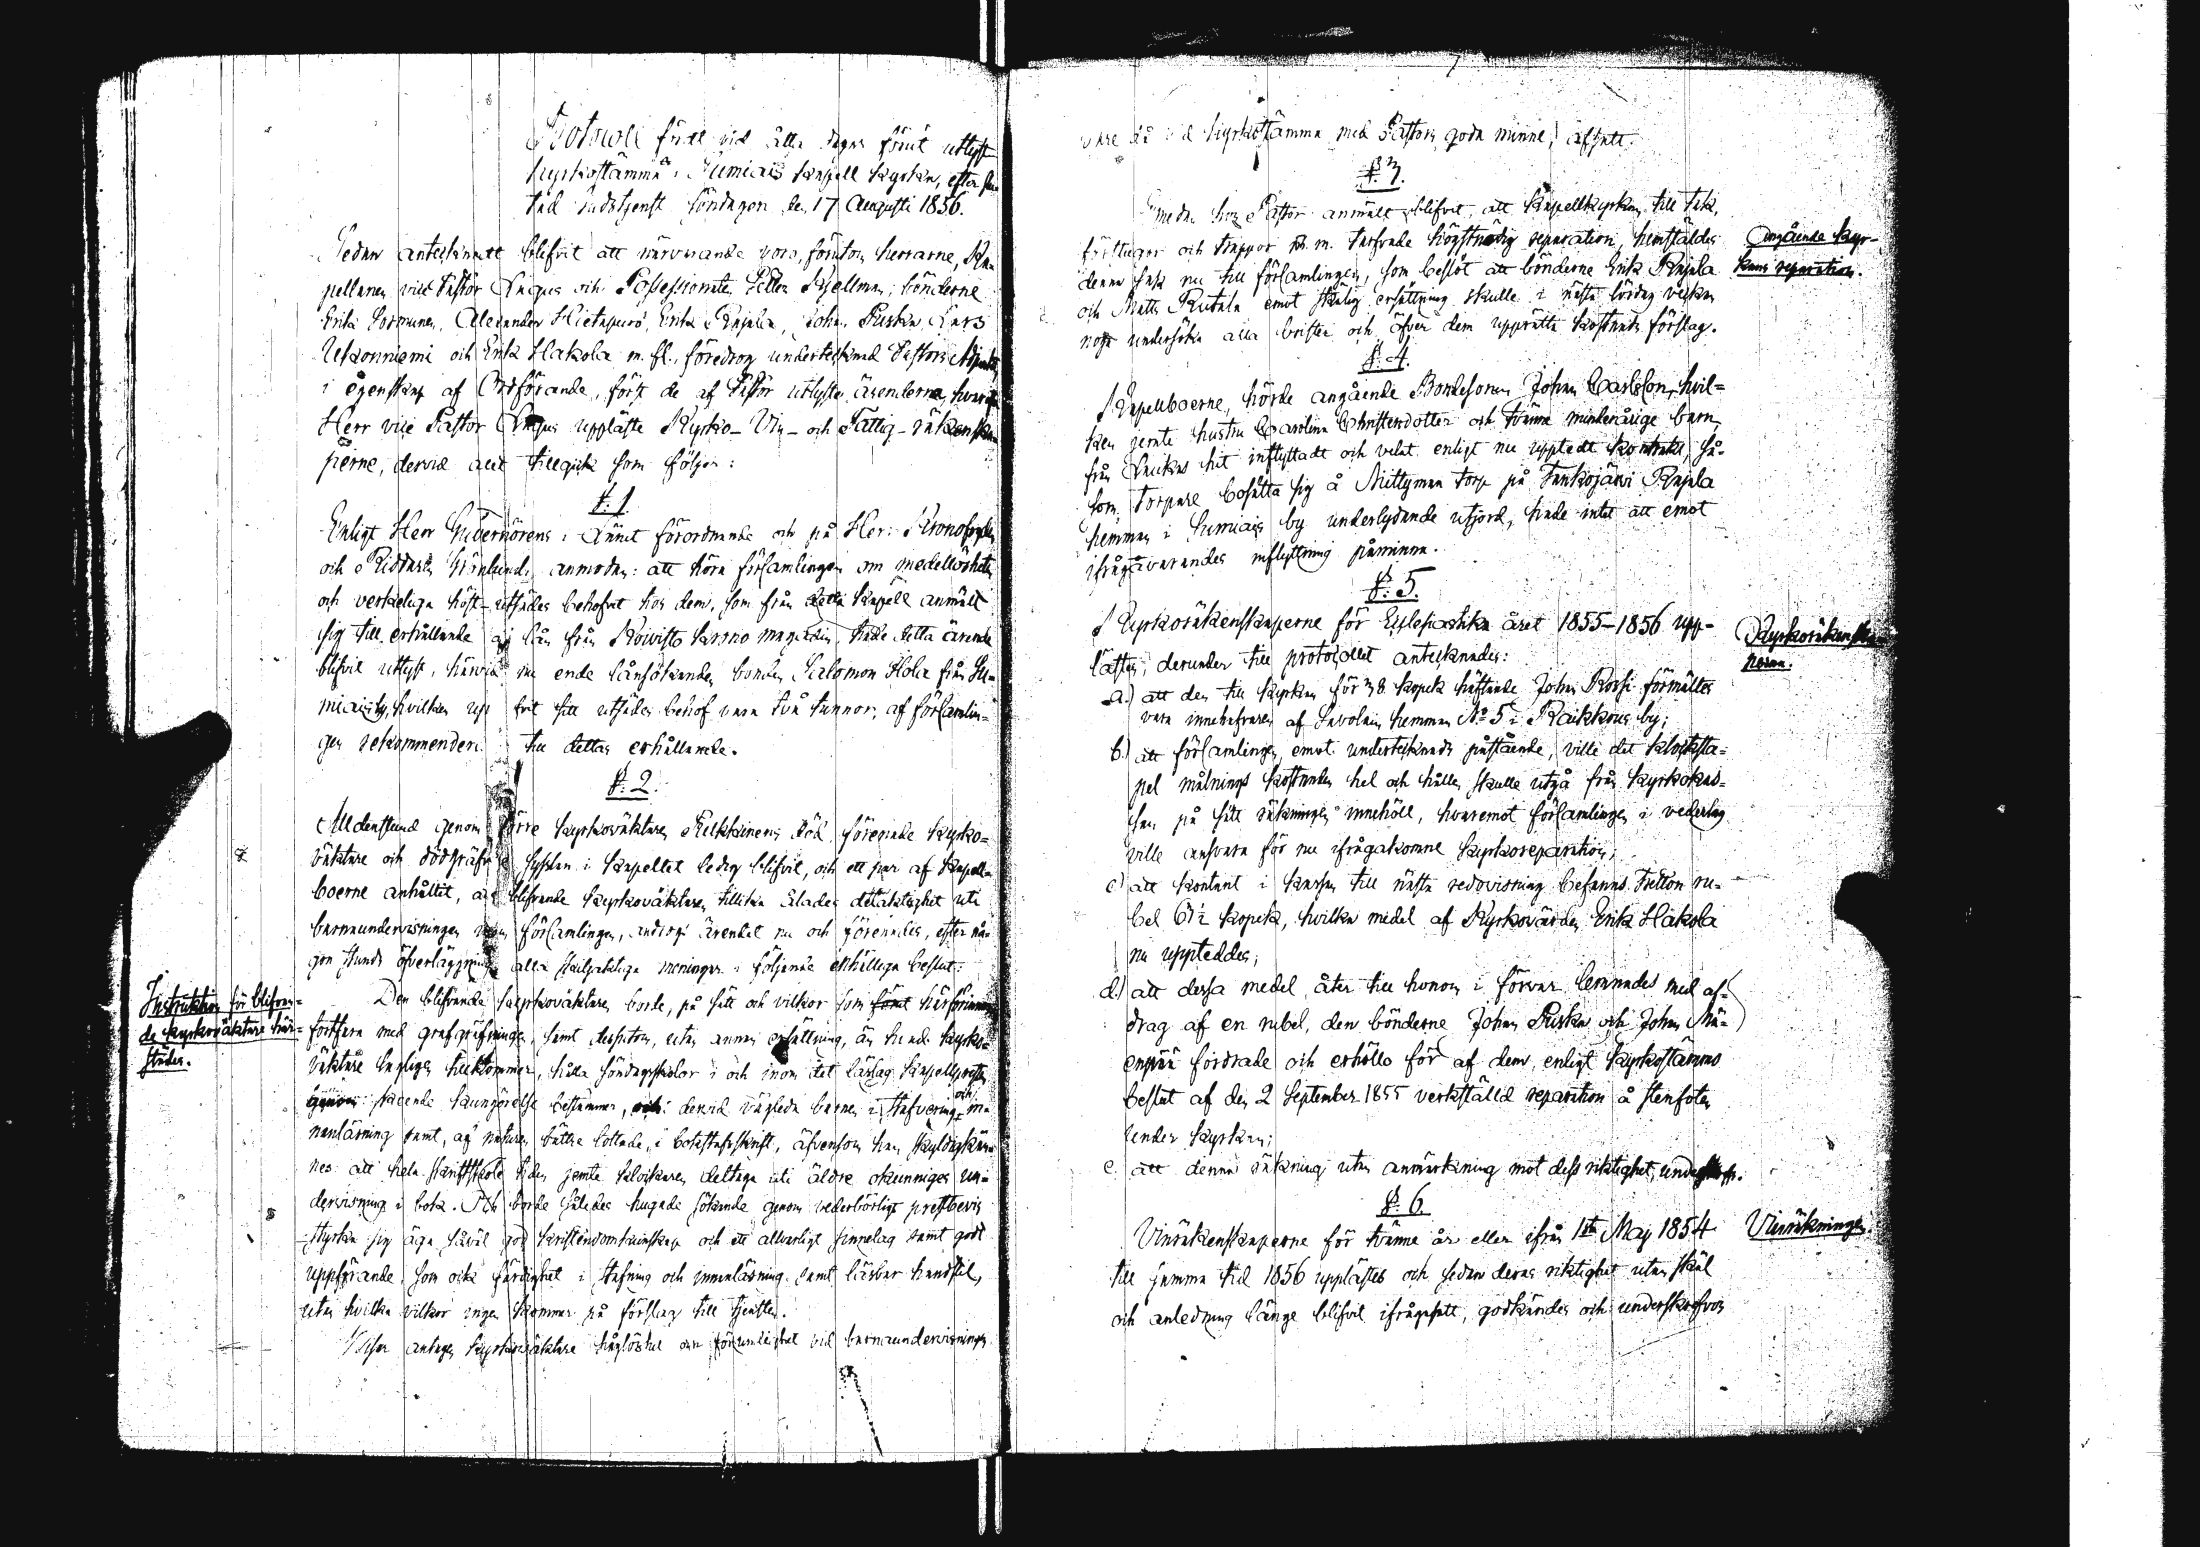 Protocoll fördt vid åtta dagar förut utlyst
kyrkostämma i Sumiais kapell kyrka, efter
tad Gudstjenst söndagen den 17 Augusti 1856.
Sedan antecknadt blifvit att närvarande voro, förutom herrarne, Ka-
pellanen vice Pastor Ongus och Possessionaten Petter Kjellman, bönderne
Erik Hietapuro, Erik Rajala, Johan Puska, Lars
Ukonniemi och Erik Hakola m. fl., föredrog undertecknad Pastors Adjunkt
i egenskap af Ordförande, först de af Pastor utlyste ärenderne, hvarefter
Herr vice Pastor upplaste Kyrko- Vin- och Fattig- räkenska-
perne, dervid allt tillgick som följer:
§. 1.
Enligt Herr Guvernörens i Länet förordnande och på Herr Kronofogden
och Riddaren Grönlunds anmodan: att höra församlingen om medellösheten
och verkeliga höst-utsädes behofvet hos dem, som från detta kapell anmält
sig till erhållande af lån från Koivisto krono magazin, hade detta ärende
blifvit utlyst, härvid nu ende lånsökanden bonden Salomon Hola från Su-
miais by, hvilken upp gifvit sitt utsädes behof vara två tunnor, af församlin-
gen rekommenderades till dettas erhållande.
§. 2.
Alldenstund genom förre kyrkoväktaren Pelkkinens död förenade kyrko-
väktare och dödgräfvare sysslan i kapellet ledig blifvit, och ett par af kapell-
boerne anhållit, att blifvande kyrkoväktaren tillika ålades delaktighet uti
barnaundervisningen inom församlingen, androgs ärendet nu och förenades, efter nå-
gon stunds öfverläggning alla skiljaktiga meningar i följande enhälliga beslut:
Instruktion för blifvan-
de kyrkoväktare här-
städes.
Den blifvande kyrkoväktaren borde, på sätt och vilkor som förut härförinnan
fortfara med grafgräfningen, samt dessutom, utan annan ersättning, än hvad kyrko-
väktare lagligen tillkommer, hålla söndagsskolor i och inom det läslag kapellpresten
skeende kungörelse bestämmer, och dervid vägleda barnen i stafvering och in-
nanläsning samt, af naturen bättre lottade, i bokstafsskrift, äfvensom han skyldigkän-
nes att hela skriftskole tiden jemte klockaren deltaga uti äldre okunniges un-
dervisning i bok. Och borde således hugade sökande genom vederbörligt prestbevis
styrka sig äga såväl god kristendomskunskap och ett allvarligt sinnelag samt godt
uppförande, som ock färdighet i stafning och innanläsning samt läsbar handstil,
utan hvilka vilkor ingen kommer på förslag till tjensten.
Visar antagen kyrkoväktare håglöshet och försumlighet vid barnaundervisningen
vare då vid kyrkostämma med Pastors goda minne, afsatt.
§. 3.
Emedan hos Pastor anmält blifvit, att kapellkyrkan till tak,
förstugor och trappor m. m. tarfvade högstnödig reparation, hemstäldes
denna sak nu till församlingen, som beslöt att bönderne Erik Rajala
och Matts Rutala emot skälig ersättning skulle i nästa lördag veckan
noga undersöka alla brister och öfver dem upprätta kostnads förslag.
Angående kyr-
kans reparation.
§. 4.
Kapellboerne, hörde angående Bondesonen Johan Carlsson, hvil-
ken jemte hustru Carolina Christersdotter och tvänne minderårige barn,
från Laukas hit inflyttadt och velat enligt nu uppteedt kontrakt, så-
som Torpare bosätta sig å Niittymaa torp på Sankojärvi Rajala
hemman i Sumiais by underlydande utjord, hade intet att emot
ifrågavarandes inflyttning påminna.
§. 5.
Kyrkoräkenskaperne för Ecclesiastika året 1855–1856 upp-
lästes, derunder till protocollet antecknades:
Kyrkoräkenska-
perna.
a.) att den till kyrkan för 38 kopek häftande Johan Korpi förmältes
vara innehafvaren af Savolais hemman No 5 i Raikkaus by;
b.) att församlingen, emot undertecknads påstående, ville det klocksta-
pel målnings kostnaden hel och hållen skulle utgå från kyrkokas-
san på sätt räkningen innehöll, hvaremot församlingen i vederlag
ville ansvara för nu ifrågakomne kyrkoreparation;
c.) att kontant i kassan till nästa redovisning befanns Tretton ru-
bel 61½ kopek, hvilka medel af Kyrkovärden Erik Hakola
nu uppteddes;
d.) att dessa medel åter till honom i förvar lemnades med af-
drag af en rubel, den bönderne Johan Puska och Johan Mä-
enpää fordrade och erhöllo för af dem, enligt kyrkostämmo
beslut af den 2 September 1855 verkställd reparation å stenfoten
under kyrkan;
e. att denna räkning utan anmärkning mot dess riktighet, underskrefs.
§. 6.
Vinräkenskaperne för tvänne år eller ifrån 1sta Maj 1854
till samma tid 1856 upplästes och sedan deras riktighet utan skäl
och anledning länge blifvit ifrågasatt, godkändes och underskrefvos
Vinräkningen.